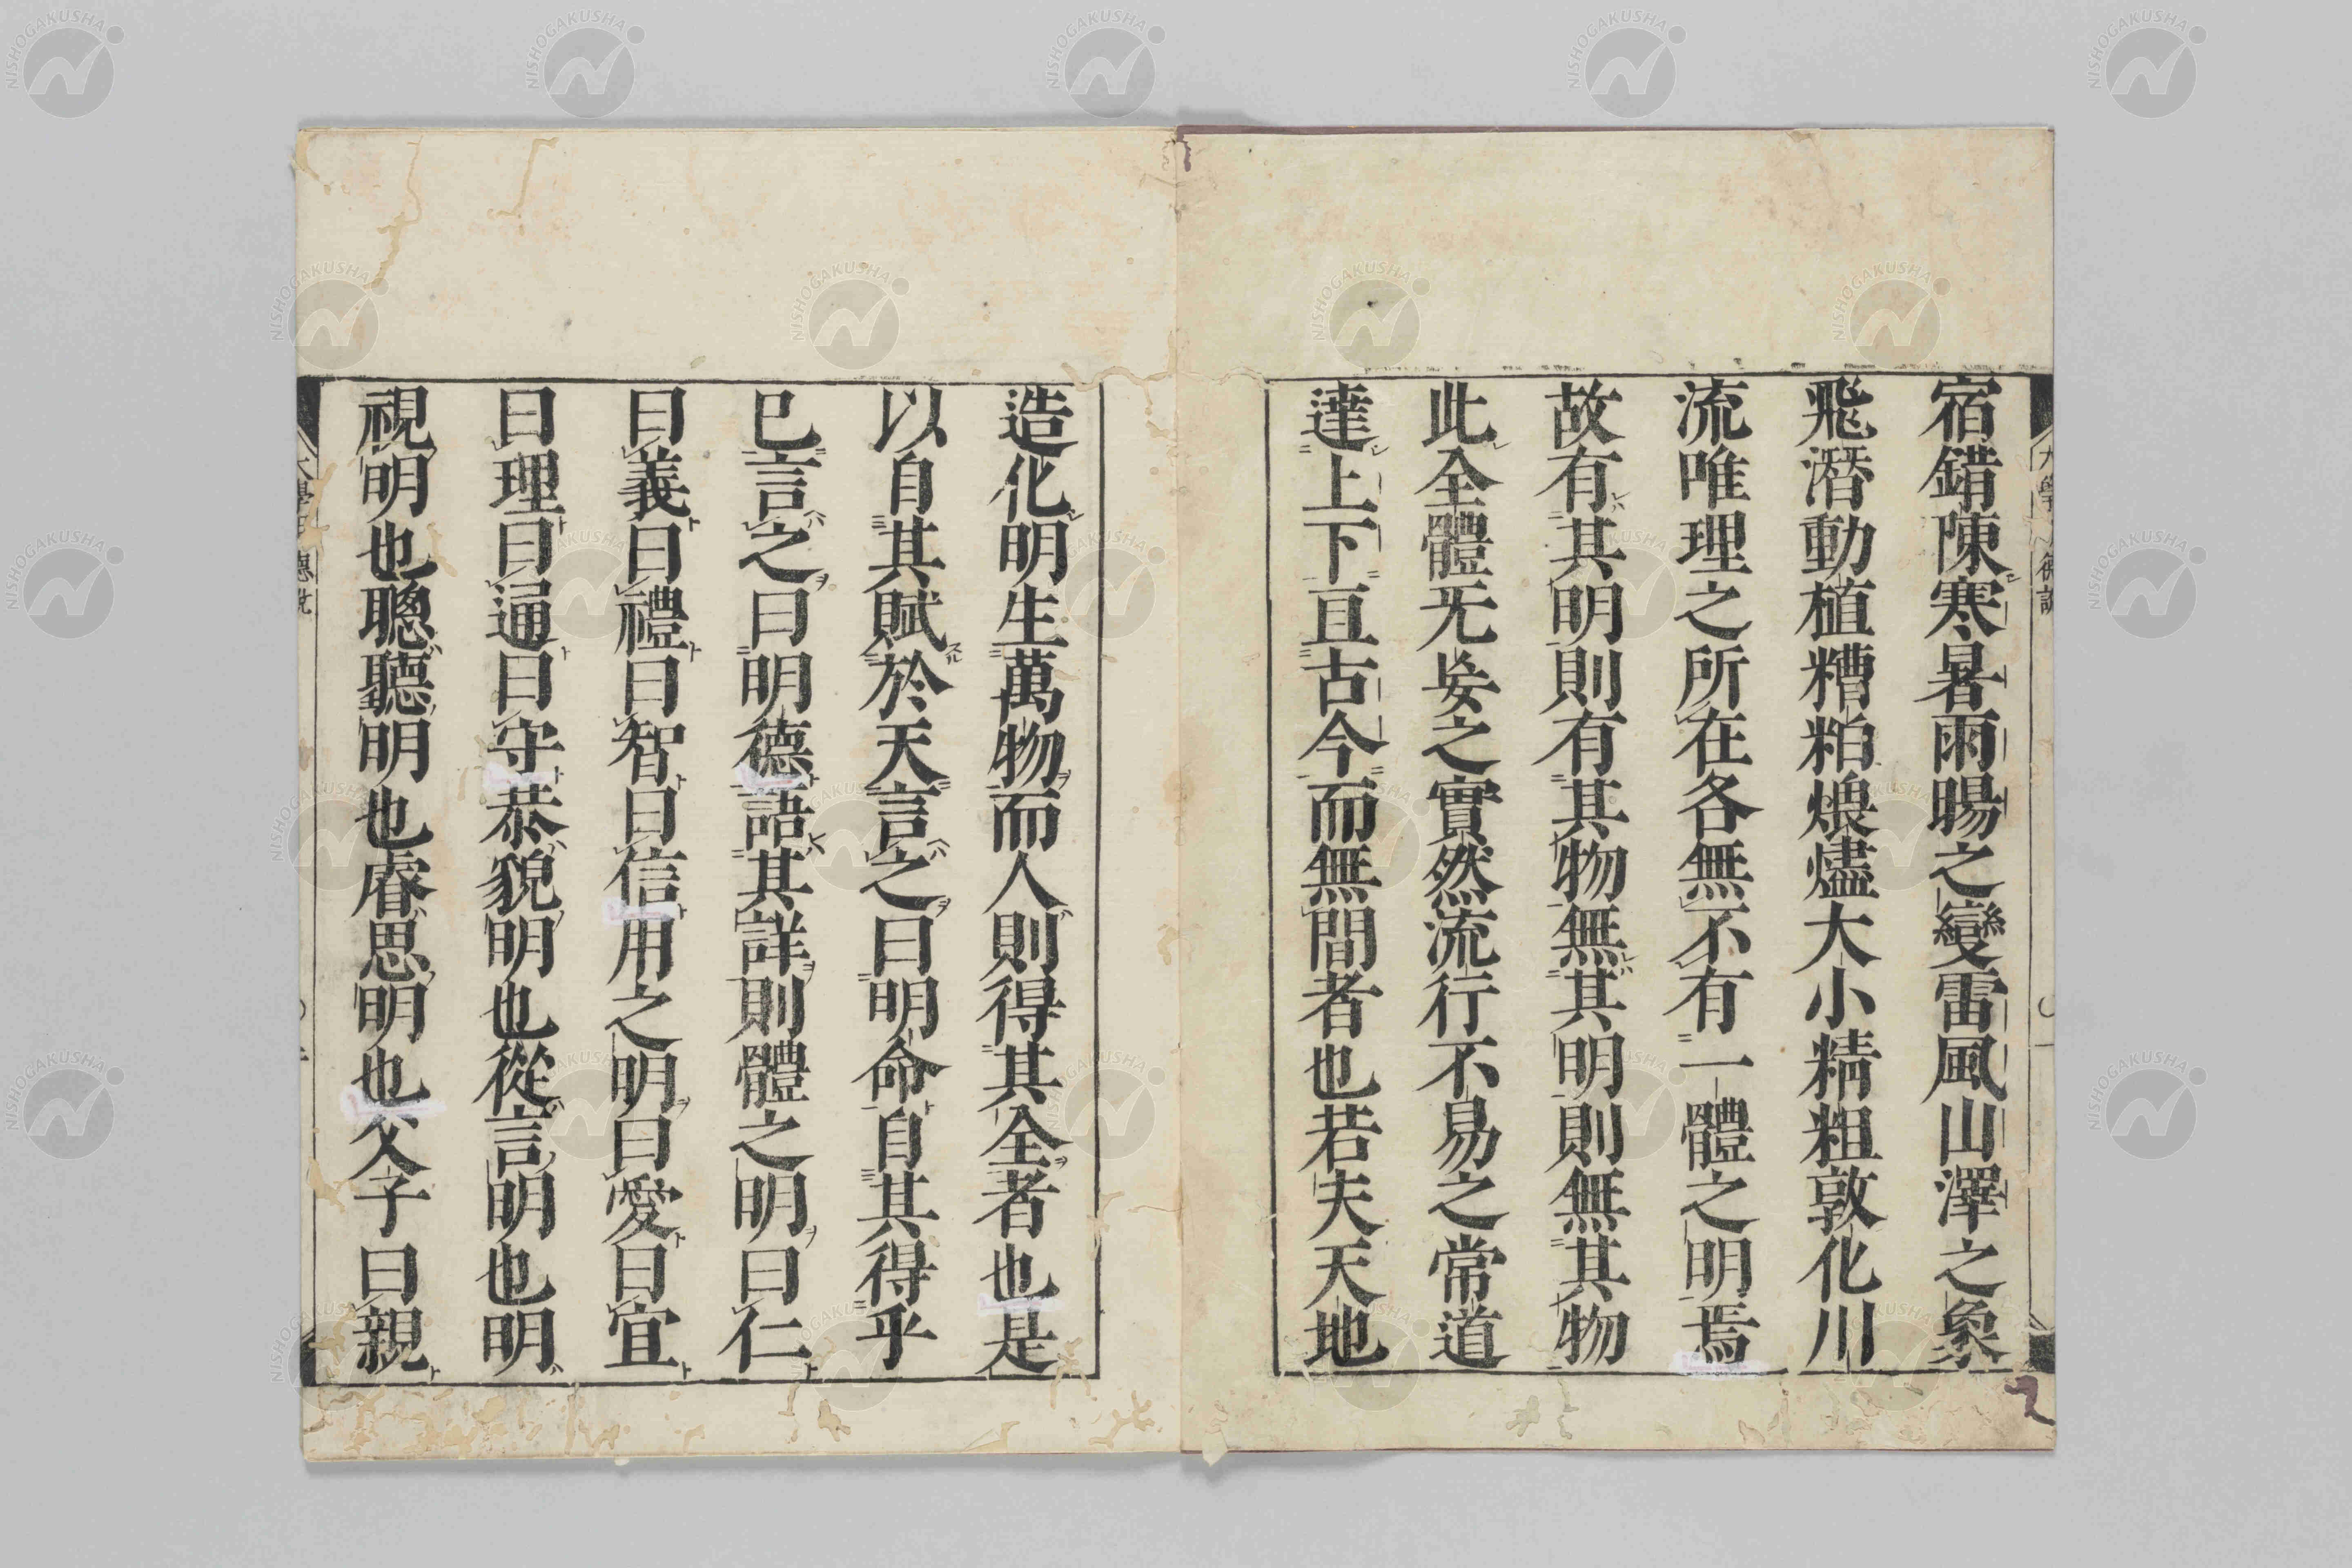 宿錯陳寒暑雨暘之變雷風山澤之象
飛潛動植糟粕煨燼大小精粗敦化川
流唯理之所在各無不有一體之明焉
故有其明則有其物無其明則無其物
此全體无妄之實然流行不易之常道
達上下亘古今而無間者也若夫天地
造化明生萬物而人則得其全者也是
以自其賦於天言之曰明命自其得乎
已言之曰明德語其詳則體之明曰仁
曰義曰禮曰智曰信用之明曰愛曰宜
曰理曰通曰守恭貌明也從言明也明
視明也聰聽明也睿思明也父子曰親
NISHOGAKUSHA